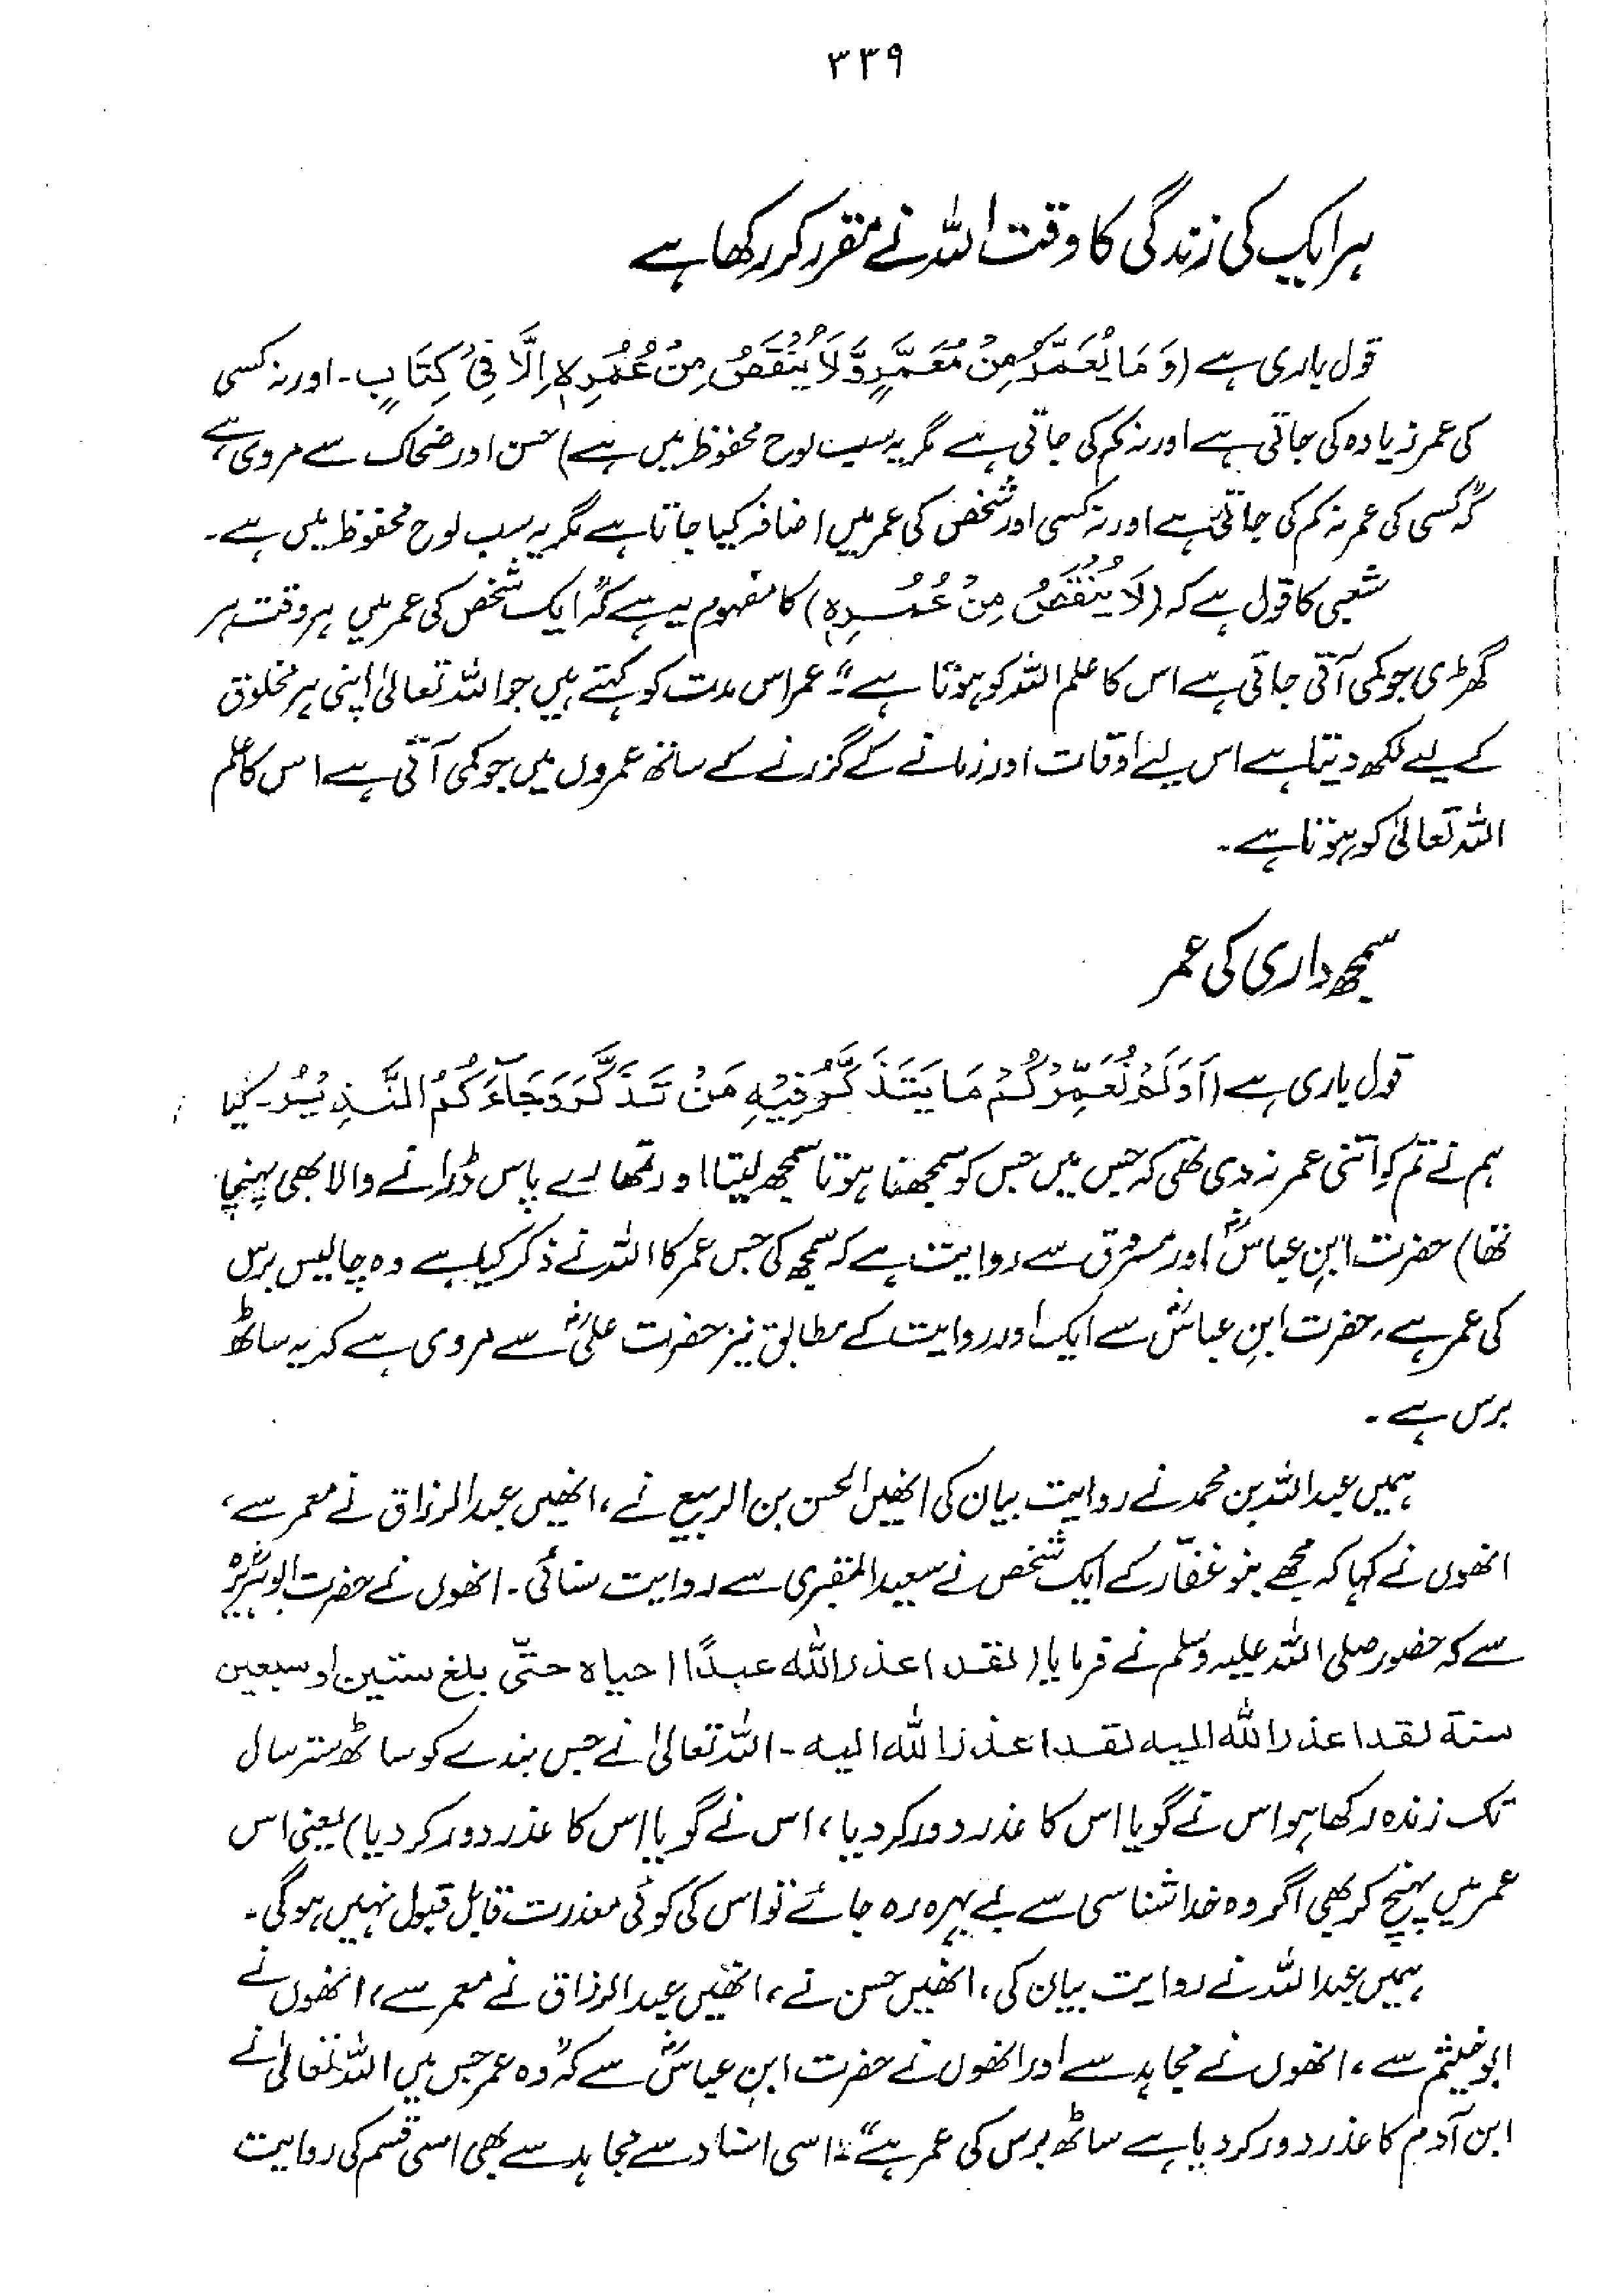 ۳۳۹
ہر ایک کی زندگی کا وقت اللہ نے مقرر کر رکھا ہے
قول باری ہے (وَمَا يُعَمَّرُ مِنْ مُعَمَّرٍ وَّلَا يُنْقَصُ مِنْ عُمُرِهٖ اِلَّا فِيْ كِتَابٍ۔ اور نہ کسی
کی عمر زیادہ کی جاتی ہے اور نہ کم کی جاتی ہے مگر یہ سب لوح محفوظ میں ہے) حسن اور ضحاک سے مروی ہے
کہ "کسی کی عمر نہ کم کی جاتی ہے اور نہ کسی اور شخص کی عمر میں اضافہ کیا جاتا ہے مگر یہ سب لوح محفوظ میں ہے۔
شعبی کا قول ہے کہ (لَا يُنْقَصُ مِنْ عُمُرِهٖ) کا مفہوم یہ ہے کہ "ایک شخص کی عمر میں ہر وقت ہر
گھڑی جو کمی آتی جاتی ہے اس کا علم اللہ کو ہوتا ہے"۔ عمر اس مدت کو کہتے ہیں جو اللہ تعالیٰ اپنی ہر مخلوق
کے لیے لکھ دیتا ہے اس لیے اوقات اور زمانے کے گزرنے کے ساتھ عمروں میں جو کمی آتی ہے اس کا علم
اللہ تعالیٰ کو ہوتا ہے۔
سمجھ داری کی عمر
قول باری ہے (اَوَلَمْ نُعَمِّرْكُمْ مَا يَتَذَكَّرُ فِيْهِ مَنْ تَذَكَّرَ وَجَآءَكُمُ النَّذِيْرُ۔ کیا
ہم نے تم کو اتنی عمر نہ دی تھی کہ جس میں جس کو سمجھنا ہوتا سمجھ لیتا اور تمھارے پاس ڈرانے والا بھی پہنچا
تھا) حضرت ابنِ عباسؓ اور مسروق سے روایت ہے کہ سمجھ کی جس عمر کا اللہ نے ذکر کیا ہے وہ چالیس برس
کی عمر ہے، حضرت ابنِ عباسؓ سے ایک اور روایت کے مطابق نیز حضرت علیؓ سے مروی ہے کہ یہ ساٹھ
برس ہے۔
ہمیں عبداللہ بن محمد نے روایت بیان کی انھیں الحسن بن الربیع نے، انھیں عبدالرزاق نے معمر سے،
انھوں نے کہا کہ مجھے بنو غفّار کے ایک شخص نے سعید المقبری سے روایت سنائی۔ انھوں نے حضرت ابوہریرہؓ
سے کہ حضور صلی اللہ علیہ وسلم نے فرمایا (لقد اعذر اللہ عبدًا احیاہ حتّی بلغ ستین او سبعین
سنۃ لقد اعذر اللہ الیہ لقد اعذر اللہ الیہ۔ اللہ تعالیٰ نے جس بندے کو ساٹھ ستر سال
تک زندہ رکھا ہو اس نے گویا اس کا عذر دور کر دیا، اس نے گویا اس کا عذر دور کر دیا) یعنی اس
عمر میں پہنچ کر بھی اگر وہ خدا شناسی سے بے بہرہ رہ جائے تو اس کی کوئی معذرت قابل قبول نہیں ہوگی۔
ہمیں عبداللہ نے روایت بیان کی، انھیں حسن نے، انھیں عبدالرزاق نے معمر سے، انھوں نے
ابو خیثم سے، انھوں نے مجاہد سے اور انھوں نے حضرت ابنِ عباسؓ سے کہ "وہ عمر جس میں اللہ تعالیٰ نے
ابن آدم کا عذر دور کر دیا ہے ساٹھ برس کی عمر ہے"۔ اسی اسناد سے مجاہد سے بھی اسی قسم کی روایت